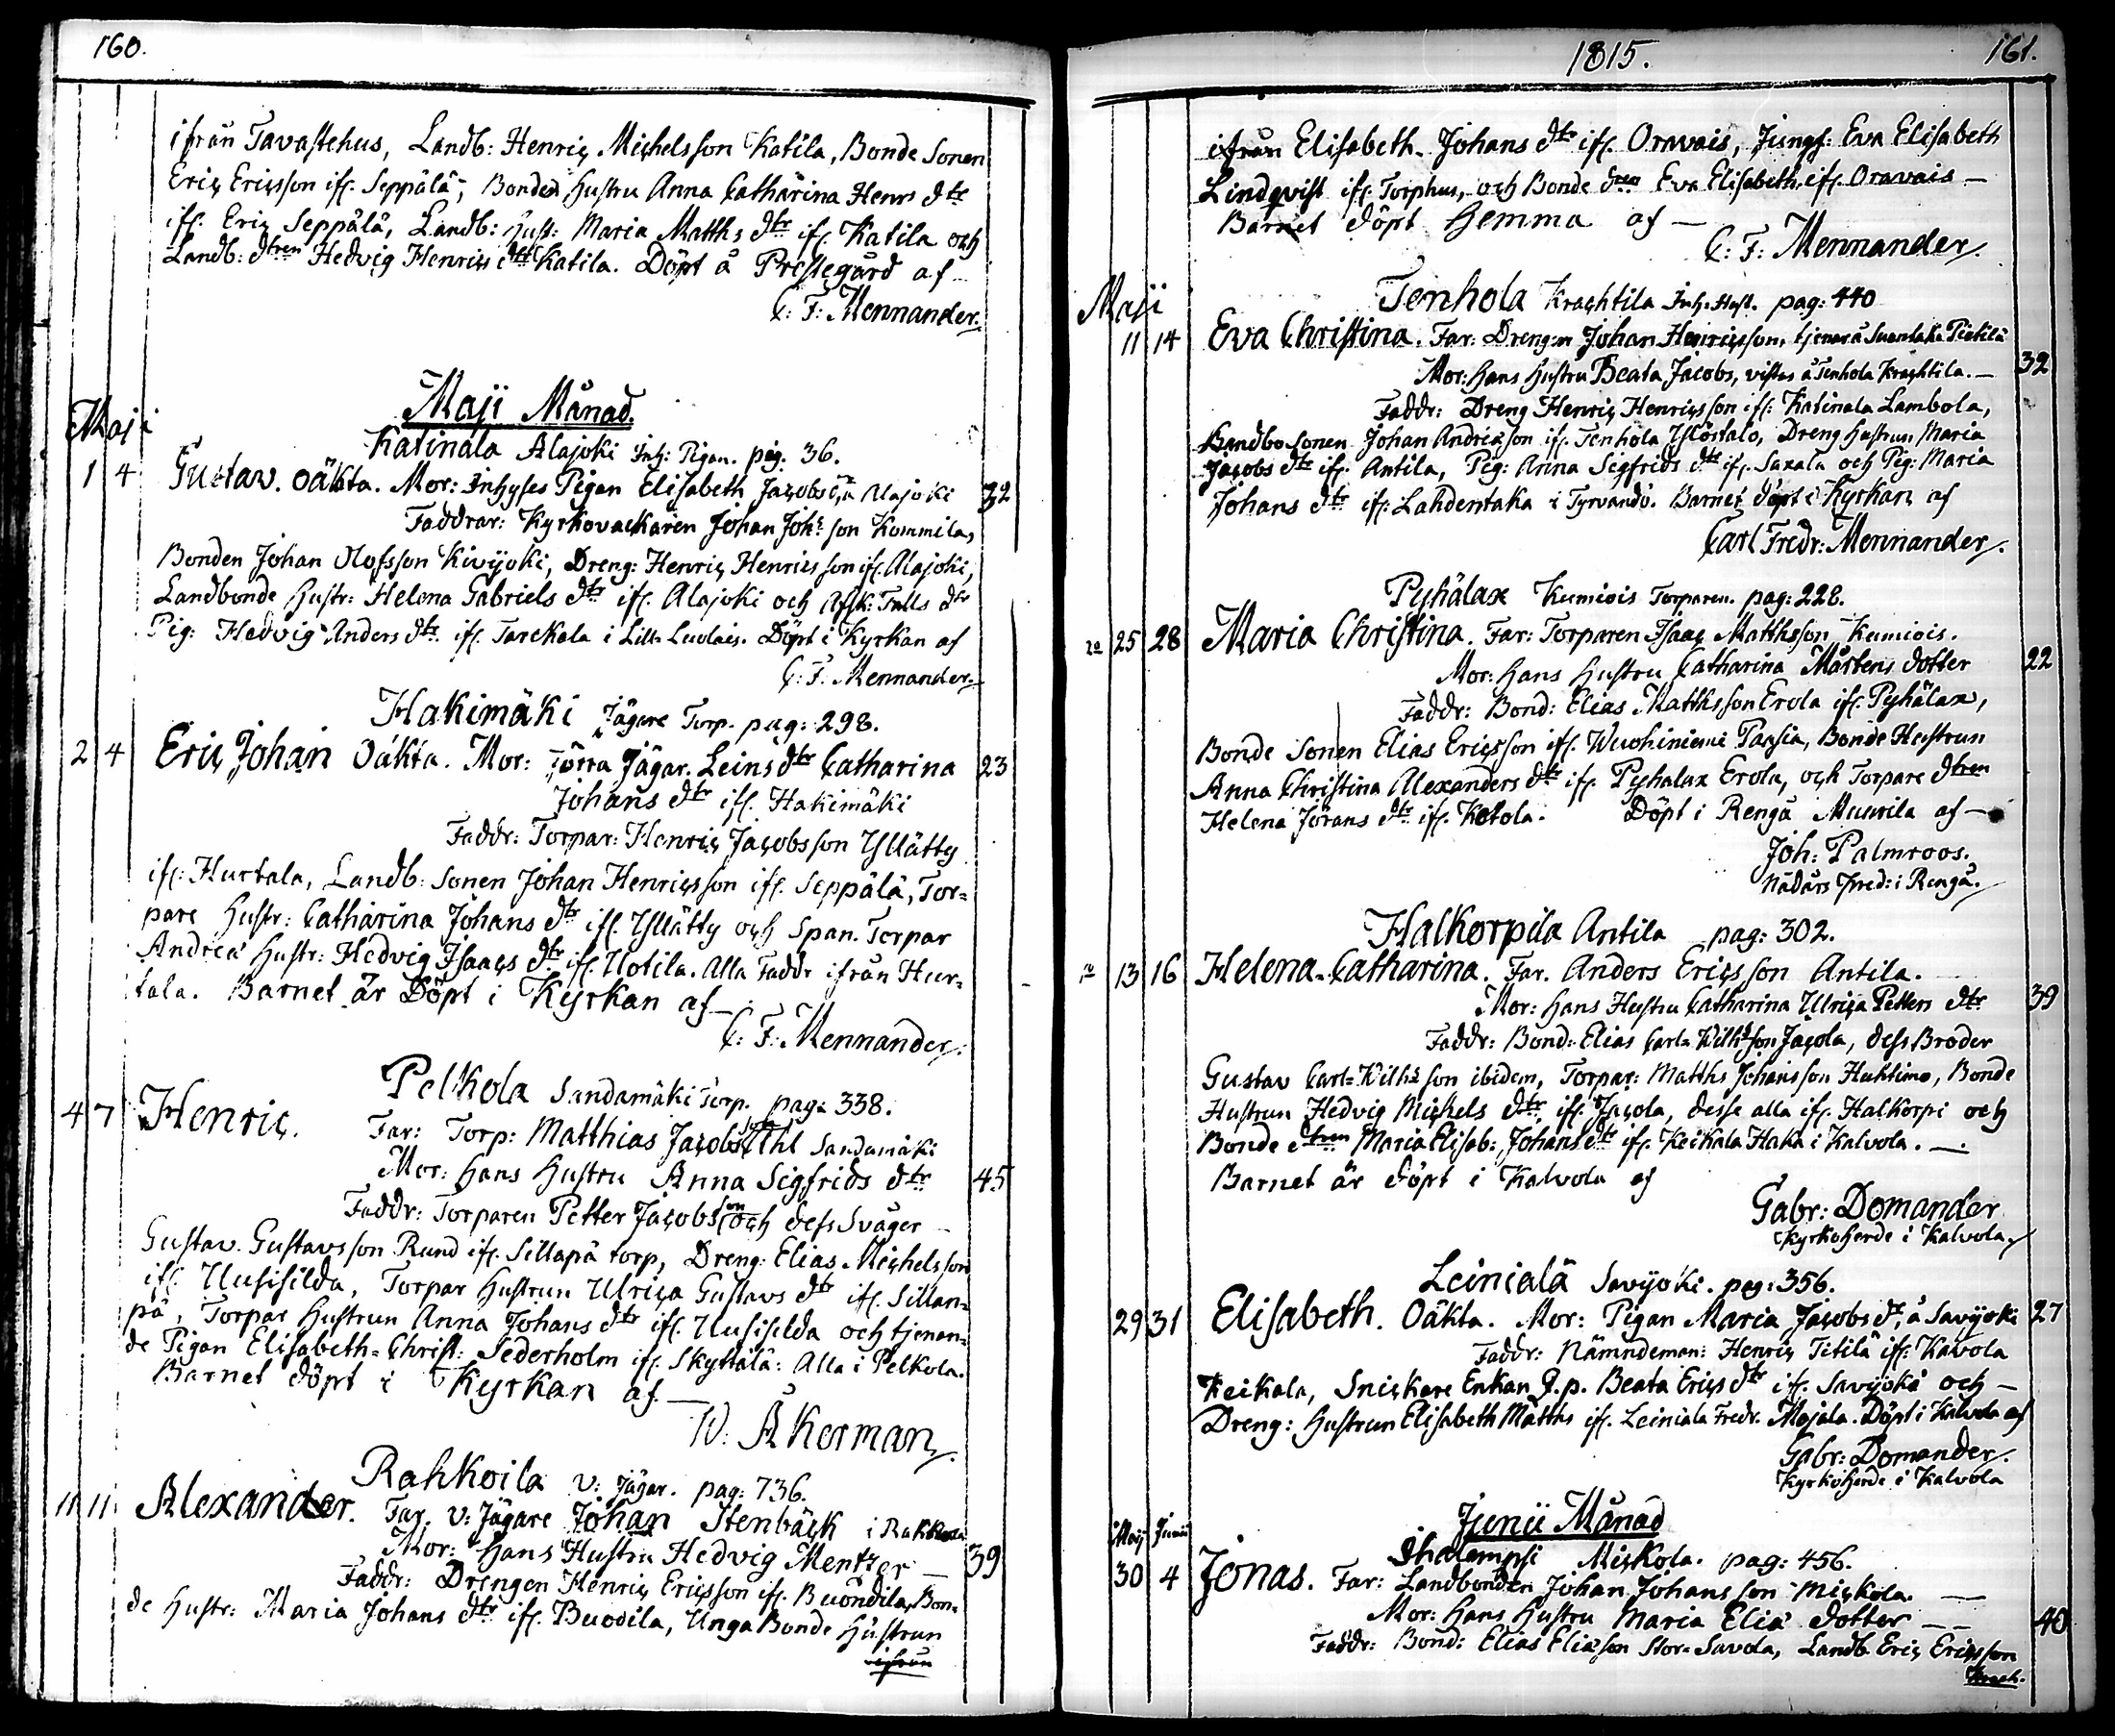 160.
ifrån Tavastehus, Landb: Henric Michelsson Katila, Bonde Sonen
Eric Ericsson ifr. Seppälä, Bonden Hustru Anna Catharina Henrs dtr
ifr. Eric Seppälä, Landb: Hust: Maria Matths dtr ifr. Katila och
Landb: dtren Hedvig Henrics dtr Katila. Döpt å Prestegård af
C: F: Mennander.
Maji Månad.
Maji
Katinala Alajoki Inh: Pigan. pag. 36.
1 4 Gustaw. Oäkta. Mor: Inhyses Pigan Elisabeth Jacobs å Alajoki 32
Faddrar: Kyrkovacktaren Johan Johs son Kommila,
Bonden Johan Olofsson Kivijoki, Dreng: Henric Henricsson ifr. Alajoki,
Landbonde Hustr: Helena Gabriels dtr ifr. Alajoki och
Pig: Hedvig Anders dtr. ifr. Tarekala i Lill Luolais. Döpt i Kyrkan af
C: F: Mennander.
Hakimäki Jägare Torp. pag: 298.
2 4 Eric Johan Oäkta. Mor: förra Jägar. Leins dtr Catharina 23
Johans dtr ifr. Hakimäki
Faddr: Torpar: Henric Jacobsson Yllätty
ifr: Hurtala, Landb: Sonen Johan Henricsson ifr. Seppälä, Tor-
pare Hustr: Catharina Johans dtr ifr. Yllätty och Span. Torpar
Andreæ Hustr: Hedvig Isaacs dtr ifr. Uotila. Alla Faddr ifrån Hur-
tala. Barnet är Döpt i Kyrkan af
C: F: Mennander.
Pelkola Sandamäki Torp. pag: 338.
4 7 Henric. Far: Torp: Matthias Jacobsson Uhl Sandamäki
Mor: Hans Hustru Anna Sigfrids dtr 45
Faddr: Torparen Petter Jacobsson och dess Svåger
Gustav Gustavsson Rund ifr. Sillapä torp, Dreng: Elias Michelsson
ifr. Uusisilda, Torpar Hustrun Ulrica Gustavs dtr ifr. Sillan-
pä, Torpar Hustrun Anna Johans dtr ifr. Uusisilda och tjenan-
de Pigan Elisabeth Christ: Sederholm ifr. Skyttälä: Alla i Pelkola.
Barnet döpt i Kyrkan af.
W: Åkerman.
Rahkoila v: Jägar. pag: 736.
11 11 Alexander. Far. v: Jägare Johan Stenbäck i Rahkoila
Mor: Hans Hustru Hedvig Mentzer 39
Faddr: Drengen Henric Ericsson ifr. Buondila, Bon-
de Hustr: Maria Johans dtr ifr. Buodila, Unga Bonde Hustrun
ifrån
1815. 161.
ifrån Elisabeth Johans dtr ifr. Oravais, Jungf: Eva Elisabeth
Lindqvist ifr. Torphus, och Bonde dtren Eva Elisabeth ifr. Oravais
Barnet döpt Hemma af
C: F: Mennander.
Maji
Tenhola Krachtila Inh. Hust. pag: 440
11 14 Eva Christina. Far: Drengen Johan Henricsson, tjenar å Suontaka Pietilä
Mor: Hans Hustru Beata Jacobs, vistas å Tenhola Krachtila. 32
Faddr: Dreng Henric Henricsson ifr: Katinala Lambola,
Landbo Sonen Johan Andreæson ifr. Tenhola Yllöstalo, Dreng Hustrun Maria
Jacobs dtr ifr. Antila, Pig: Anna Sigfrids dtr ifr. Saxala och Pig: Maria
Johans dtr ifr: Lahdentaka i Tyrvändö. Barnet döpt i Kyrkan af
Carl Fredr: Mennander.
Pyhälax Kumiois Torparen. pag: 228.
25 28 Maria Christina. Far: Torparen Isaac Matthsson Kumiois.
Mor: Hans Hustru Catharina Mårtens dotter 22
Faddr: Bond: Elias Matthsson Erola ifr. Pyhälax,
Bonde Sonen Elias Ericsson ifr. Wuohiniemi Paasia, Bonde Hustrun
Anna Christina Alexanders dtr ifr. Pyhalax Erola, och Torpare dtren
Helena Jörans dtr ifr. Ketola. Döpt i Rengå Muurila af
Joh: Palmroos.
Nådårs Pred: i Rengå.
Halkorpila Antila pag: 302.
13 16 Helena Catharina. Far. Anders Ericsson Antila.
Mor: Hans Hustru Catharina Ulrica Petters dtr 39
Faddr: Bond: Elias Carl Wilhsson Jacola, dess Broder
Gustav Carl Wilhs son ibidem, Torpar: Matths Johansson Huhtimo, Bonde
Hustrun Hedvig Michels dtr ifr. Jacola, desse alla ifr. Halkorpi och
Bonde dtren Maria Elisab: Johans dtr ifr. Keikala Haka i Kalvola.
Barnet är döpt i Kalvola af
Gabr: Domander
Kyrkoherde i Kalvola.
Leinialä Savijoki. pag: 356.
29 31 Elisabeth. Oäkta. Mor: Pigan Maria Jacobs dr, å Savijoki 27
Faddr: Nämndeman: Henric Titilä ifr: Kavola
Keikala, Snickare Enkan Beata Erics dtr ifr. Savijoki och
Dreng: Hustrun Elisabeth Matths ifr. Leiniala Fredr. Majala. Döpt i Kalvola af
Gabr: Domander.
Kyrkoherde i Kalvola
Junii Månad
Maij Junii
Ihalempsi Mickola. pag: 456.
30 4 Jonas. Far: Landbonden Johan Johansson Mickola.
Mor: Hans Hustru Maria Eliæ dotter 40
Faddr: Bond: Elias Eliæson Stor-Savola, Landb Eric Ericsson